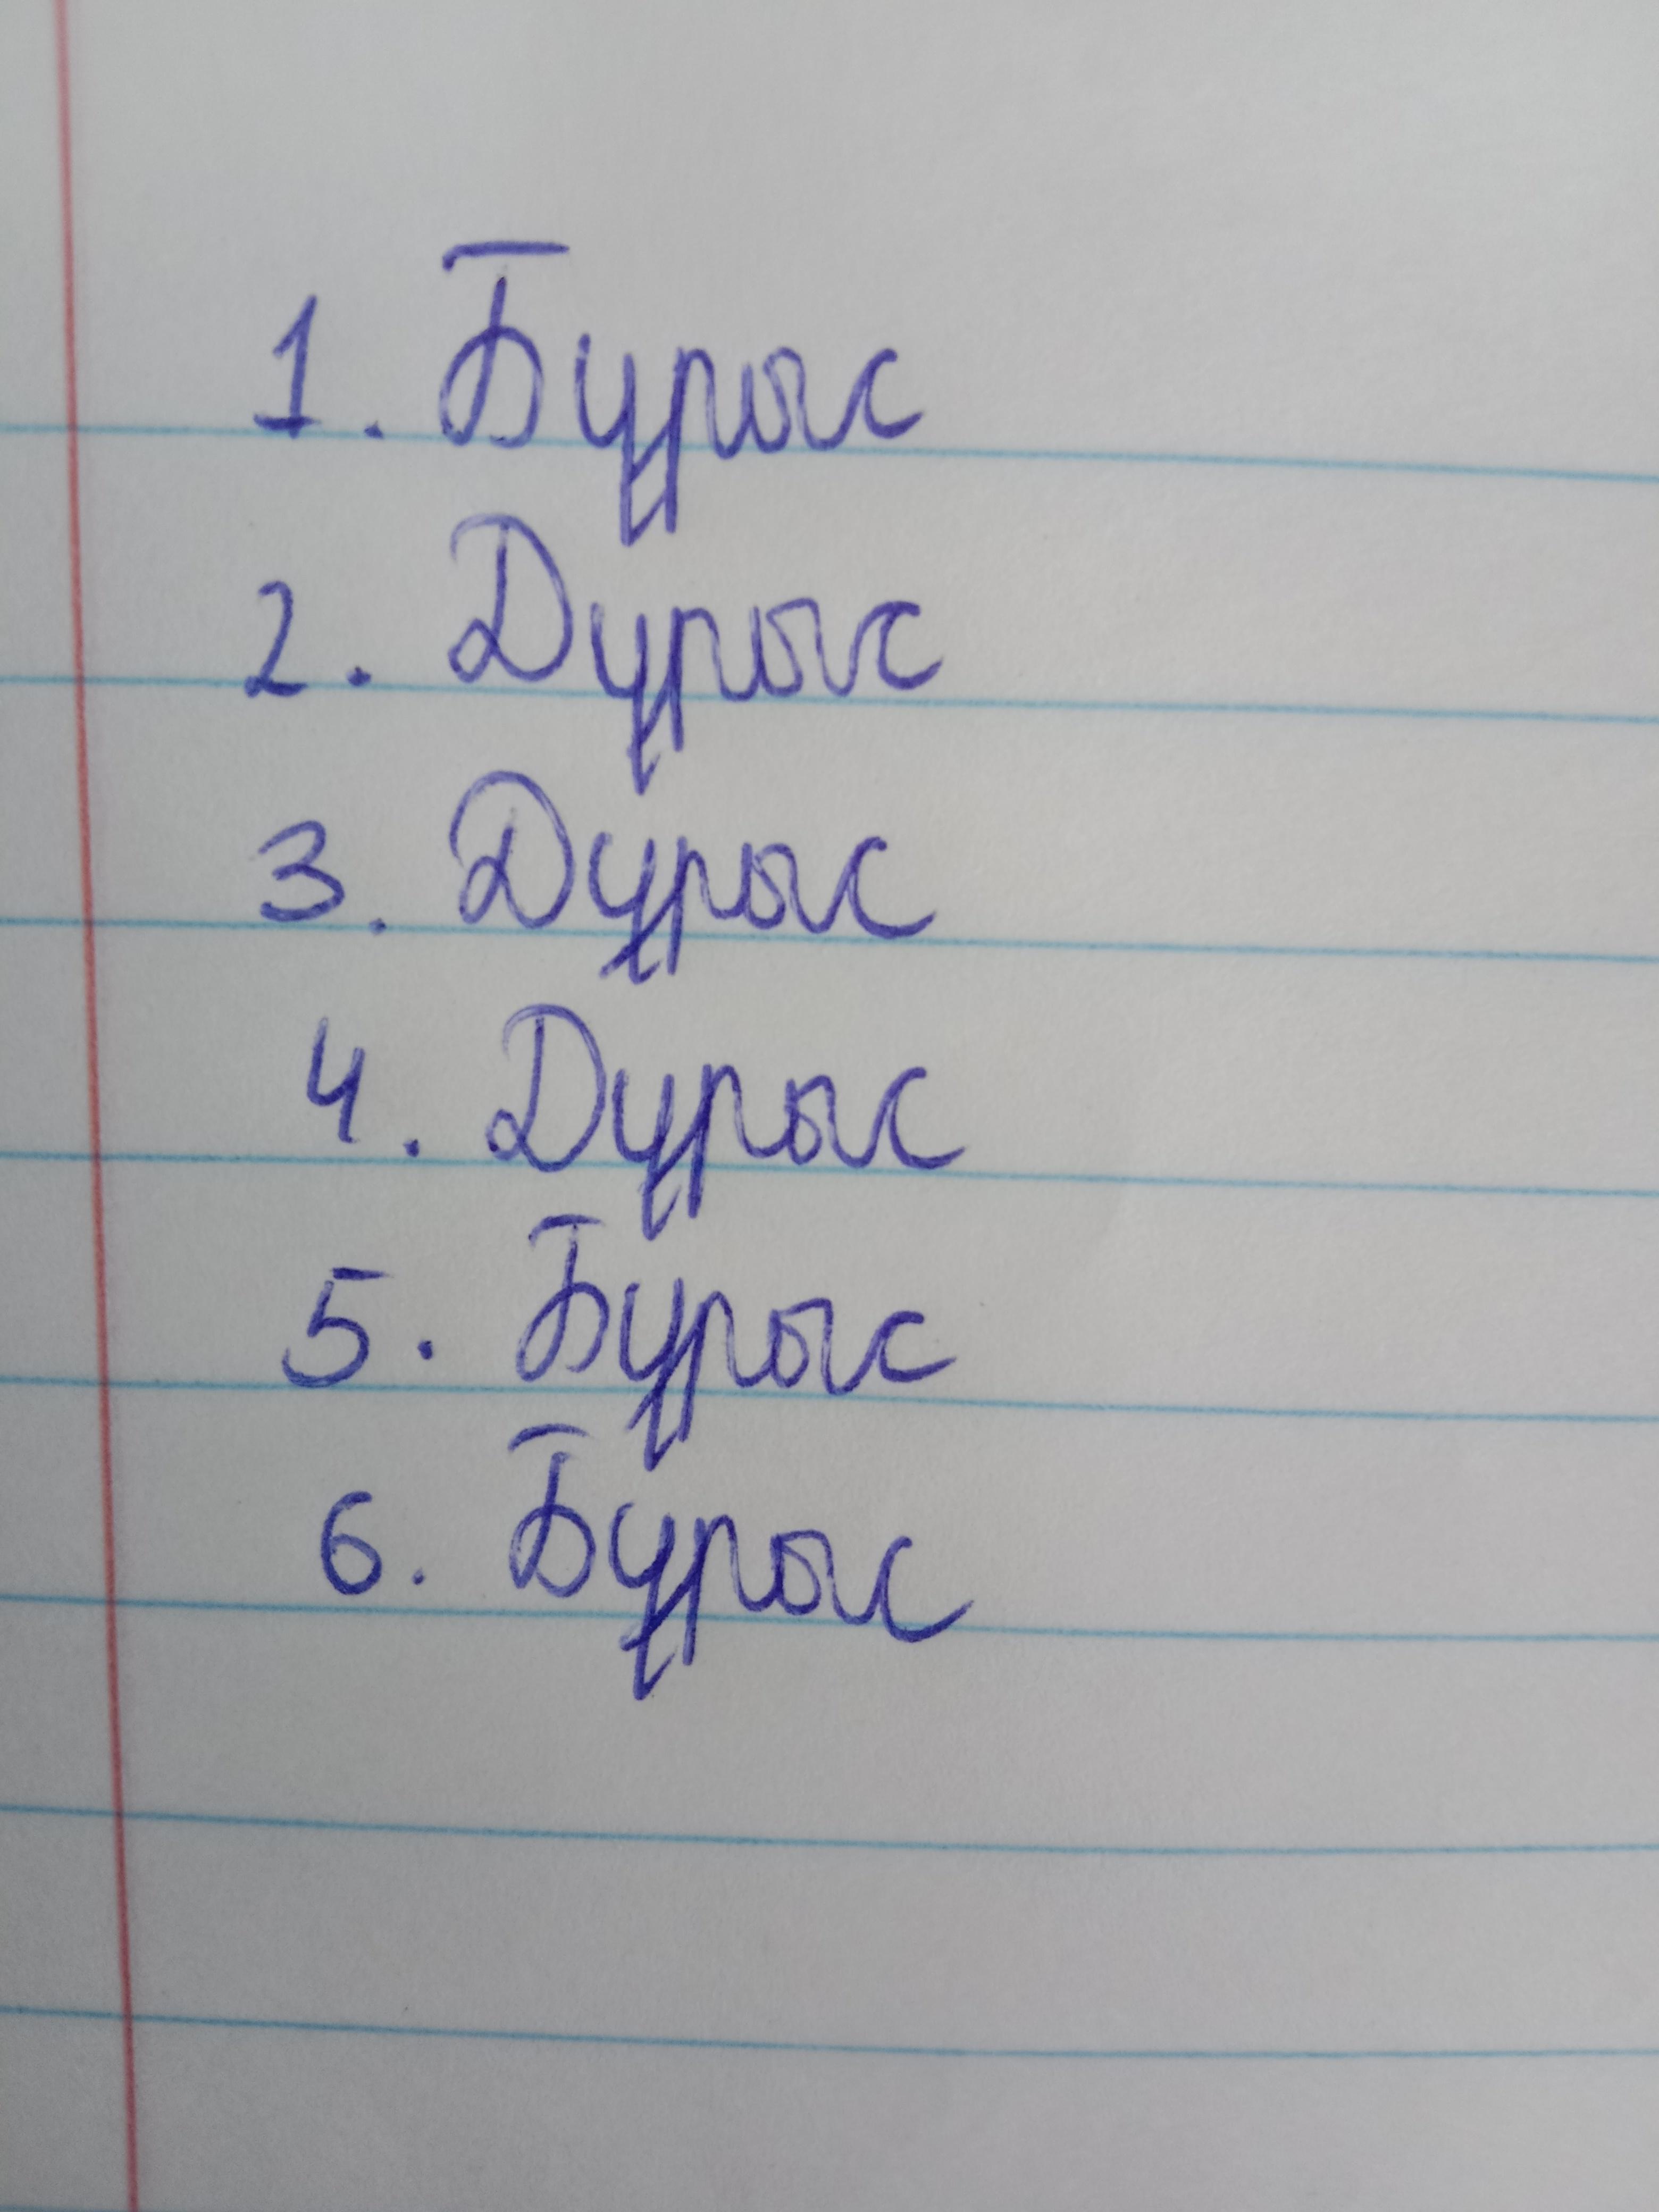 1. Бурыс
2. Дурыс
3. Дурыс
4. Дурыс
5. Бурыс
6. Бурыс